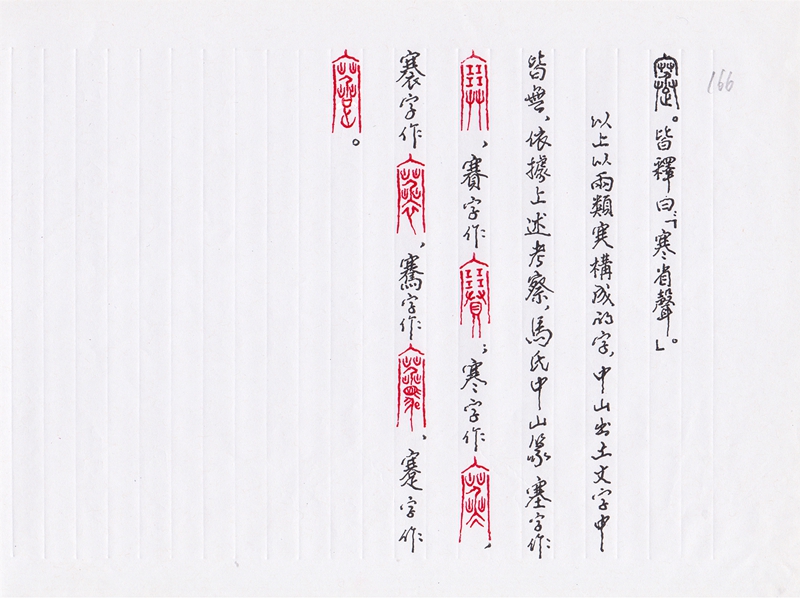 166
。皆釋曰:「寒省聲」。
以上以兩類寒構成的字,中山出土文字中
皆無,依據上述考察,馬氏中山篆 塞字作
,賽字作 ;寒字作 ,
褰字作 ,騫字作 ,蹇字作
。